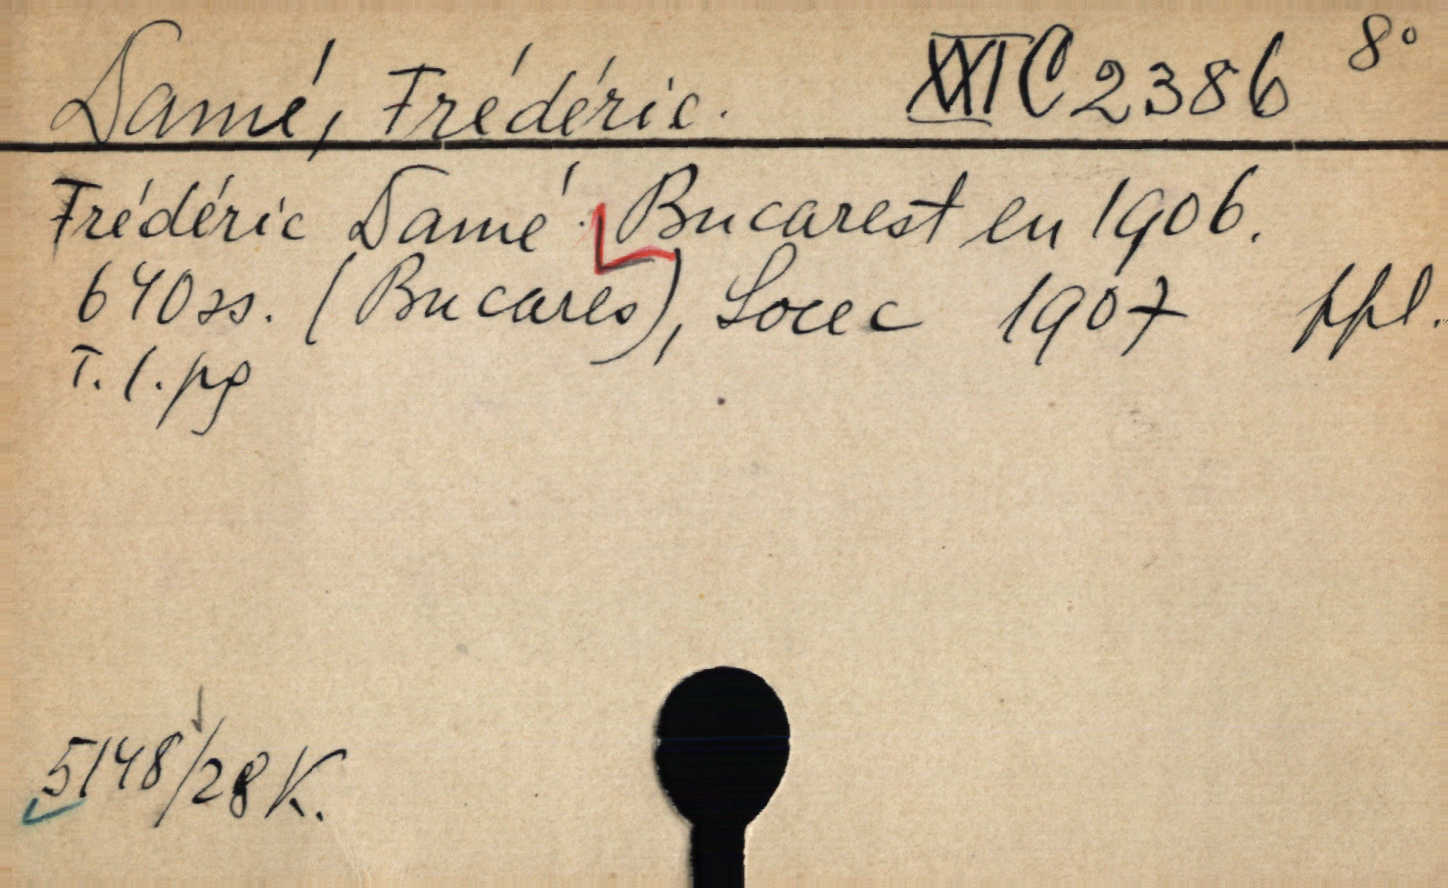 Damé, Frédéric. XXI C 2386 8°
Frédéric Damé. Bucarest en 1906.
640 ss. (Bucares), Socec 1907 ppl.
T. 1. pg
5148/28 K.